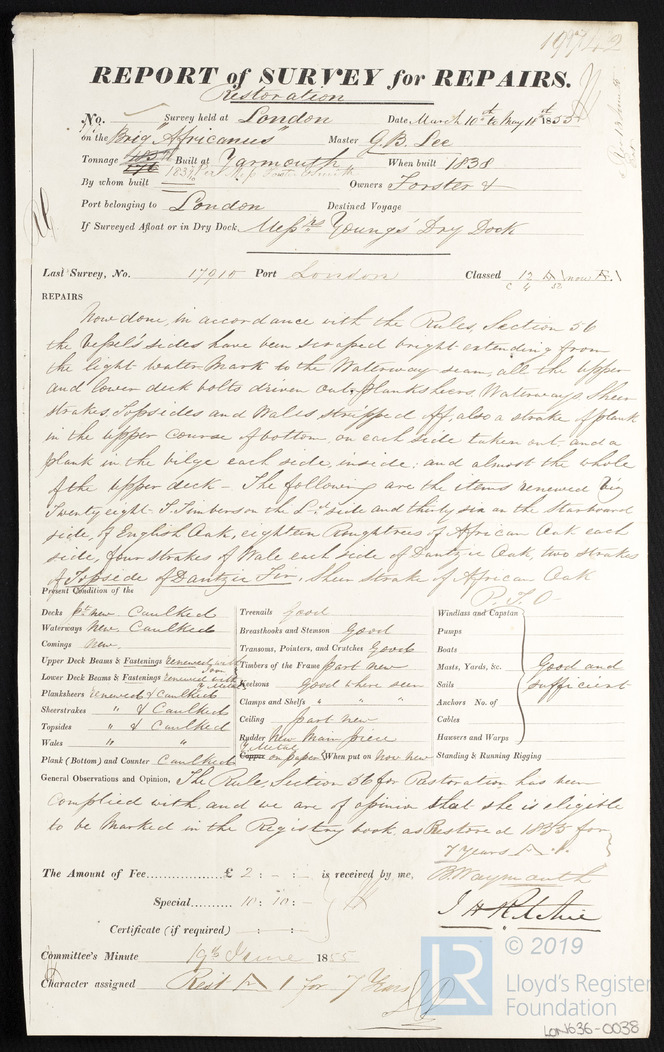 19742
REPORT of SURVEY for REPAIRS.
Restoration
No. Survey held at London Date, March 10th to May 11th 1855
on the Brig "Africanus" Master G.B. Lee
Tonnage Built at Yarmouth When built 1838
By whom built Owners Forster &
Port belonging to London Destined Voyage
If Surveyed Afloat or in Dry Dock, Messrs Youngs' Dry Dock
Last Survey, No. 17910 Port London Classed 12 A now
REPAIRS
Now done, in accordance with the Rules, Section 56
the Vessel's sides have been scraped bright extending from
the light water Mark to the Waterway seam, all the upper
and lower deck bolts driven out, Planksheers, Waterways, Sheer
strakes, Topsides and Wales stripped off, also a strake of plank
in the upper course of bottom on each side taken out and a
plank in the bilge each side, inside; and almost the whole
of the upper deck - The following are the items renewed Viz
Twenty eight F. Timbers on the Ld side and thirty six on the Starboard
side, of English Oak, eighteen Roughtrees of African Oak each
side, four strakes of Wale each side of Dantzic Oak, two strakes
of Topside of Dantzic Fir, Sheer strake of African Oak
P.T.O
Present Condition of the
Decks pt new Caulked
Waterways New. Caulked
Comings New.
Upper Deck Beams & Fastenings Renewed with Iron
Lower Deck Beams & Fastenings Renewed with Y. Metal
Planksheers Renewed & Caulked
Sheerstrakes " & Caulked
Topsides " & Caulked
Wales " "
Plank (Bottom) and Counter Caulked
Treenails Good
Breasthooks and Stemson Good
Transoms, Pointers, and Crutches Good
Timbers of the Frame part new
Keelsons good where seen
Clamps and Shelfs " " "
Ceiling part new
Rudder New Main piece
Y. Metal
Copper on paper When put on Now new
Windlass and Capstan
Pumps
Boats
Masts, Yards, &c. Good and
Sails sufficient
Anchors No. of
Cables
Hawsers and Warps
Standing & Running Rigging
General Observations and Opinion, The Rules, Section 56 for Restoration has been
complied with, and we are of opinion that she is eligible
to be Marked in the Registry book as Restored 1855 for
7 years A.1.
The Amount of Fee £ 2 : - : - is received by me, B. Waymouth
Special 10 : 10 : -
J H Ritchie
Certificate (if required) : :
Committee's Minute 19th June 1855
Character assigned Rest A 1 for 7 Years
LR © 2019
Lloyd's Register
Foundation
LON636-0038